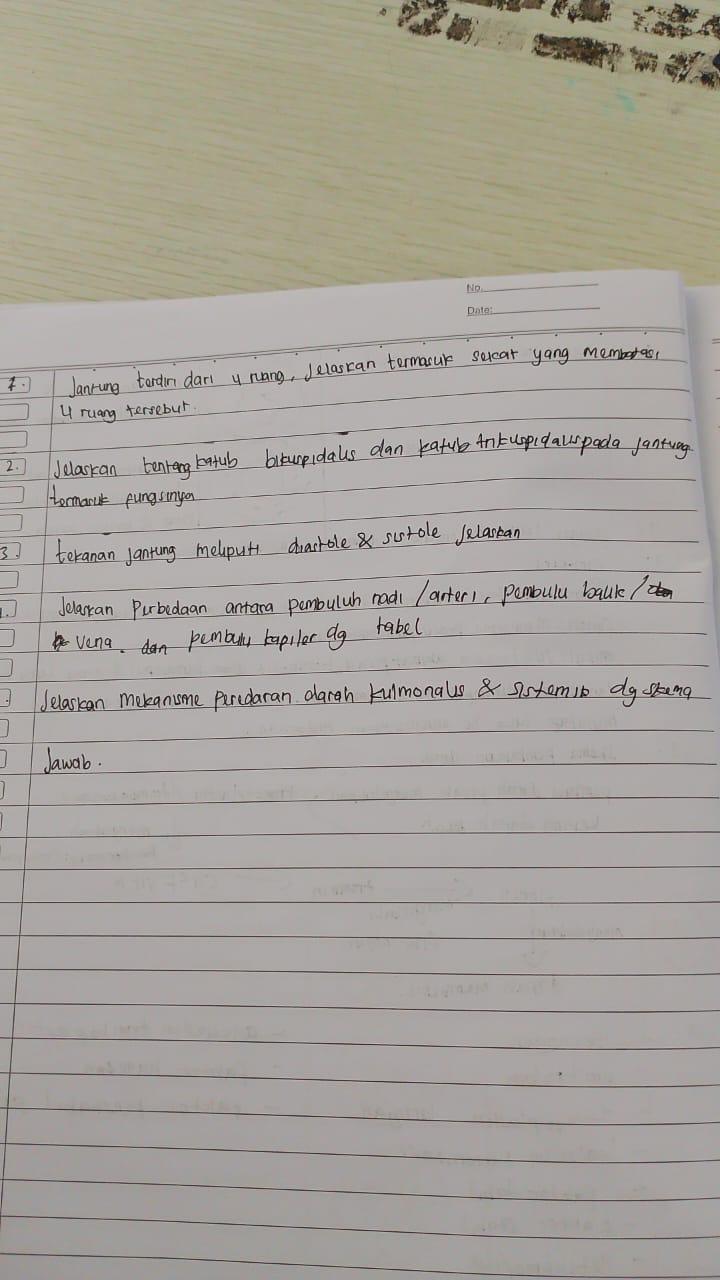 No.
Date:
1. Jantung terdiri dari 4 ruang, Jelaskan termasuk sekat yang membatasi
4 ruang tersebut.
2. Jelaskan tentang katub bikuspidalis dan katub trikuspidalis pada jantung
termasuk fungsinya
3. tekanan jantung meliputi diastole & sistole jelaskan
Jelaskan Perbedaan antara pembuluh nadi / arteri, pembulu balik /
Vena. dan pembulu kapiler dg tabel
Jelaskan mekanisme peredaran darah kulmonalis & sistemib dg skema
Jawab.